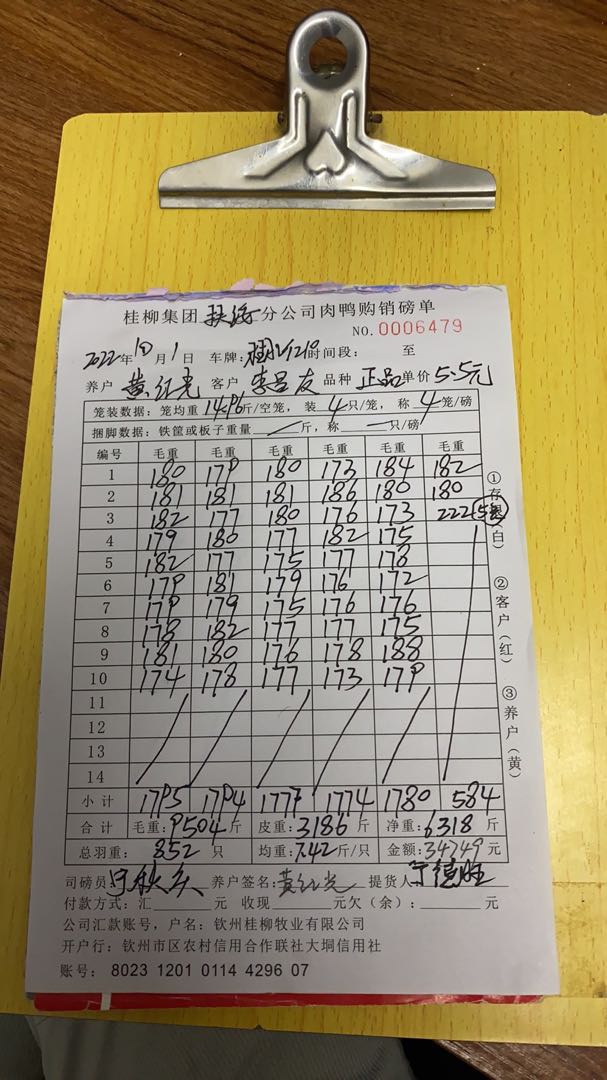 桂柳集团扶绥分公司肉鸭购销磅单
NO.0006479
2022年10月1日 车牌: 时间段: 至
养户 黄红光 客户 李吕友 品种 正品 单价 5.5元
笼装数据: 笼均重 14.96斤/空笼, 装 4只/笼, 称 4笼/磅
捆脚数据: 铁筐或板子重量 / 斤, 称 — 只/磅
编号 毛重 毛重 毛重 毛重 毛重 毛重
1 180 179 180 173 184 182
2 181 181 181 186 180 180
3 182 177 180 176 173 222
4 179 180 177 182 175
5 182 177 175 177 178
6 179 181 179 176 172
7 179 179 175 176 176
8 178 182 177 177 175
9 181 180 176 178 188
10 174 178 177 173 179
11
12
13
14
小计 1795 1794 1777 1774 1780 584
合计 毛重: 9504斤 皮重: 3186斤 净重: 6318斤
总羽重: 852只 均重: 7.42斤/只 金额: 34749元
司磅员: 养户签名: 黄红光 提货人: 宁德胜
付款方式: 汇 元 收现 元欠(余): 元
公司汇款账号, 户名: 钦州桂柳牧业有限公司
开户行: 钦州市区农村信用合作联社大垌信用社
账号: 8023 1201 0114 4296 07
①存根(白)
②客户(红)
③养户(黄)